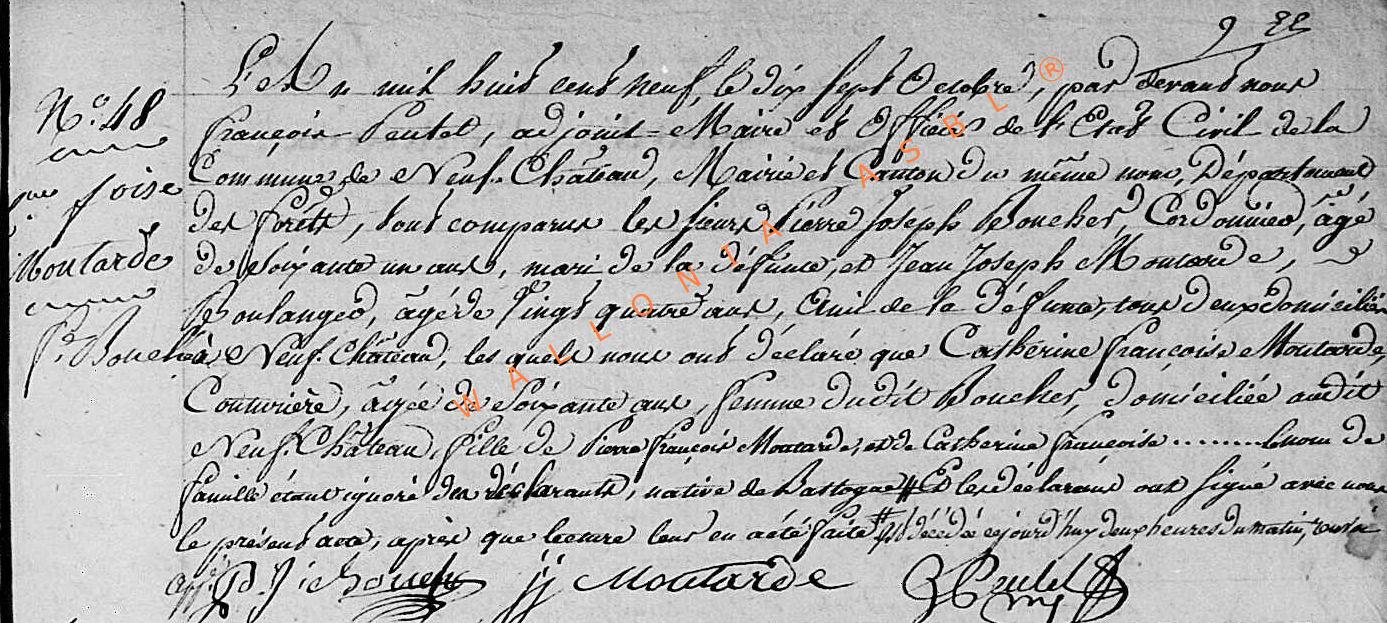 N.° 48
foise
Moutarde
Bouché
L'An mil huit cent neuf, le dix sept Octobre, par devant nous
françois Poulet, adjoint-Maire et Officier de l'Etat Civil de la
Commune de Neuf-Château, Mairie et Canton du même nom, Département
des forêts, sont comparus les sieurs Pierre Joseph Boucher, Cordonnier, âgé
de soixante un ans, mari de la défunte, et Jean Joseph Moutarde,
Boulanger, âgé de vingt quatre ans, Ami de la défunte, tous deux domiciliés
à Neuf-Château, les quels nous ont déclaré que Catherine françoise Moutarde,
Couturière, âgée de soixante ans, femme dudit Boucher, domiciliée audit
Neuf-Château, fille de Pierre françois Moutarde, et de Catherine françoise ......... le nom de
famille étant ignoré des déclarants, native de Bastogne # Et les déclarans ont signé avec nous
le présent acte, après que lecture leur en a été faite # est décédée cejourd'huy deux heures du matin,
P. J. Bouché JJ Moutarde Poulet
WALLONIA ASBL ®